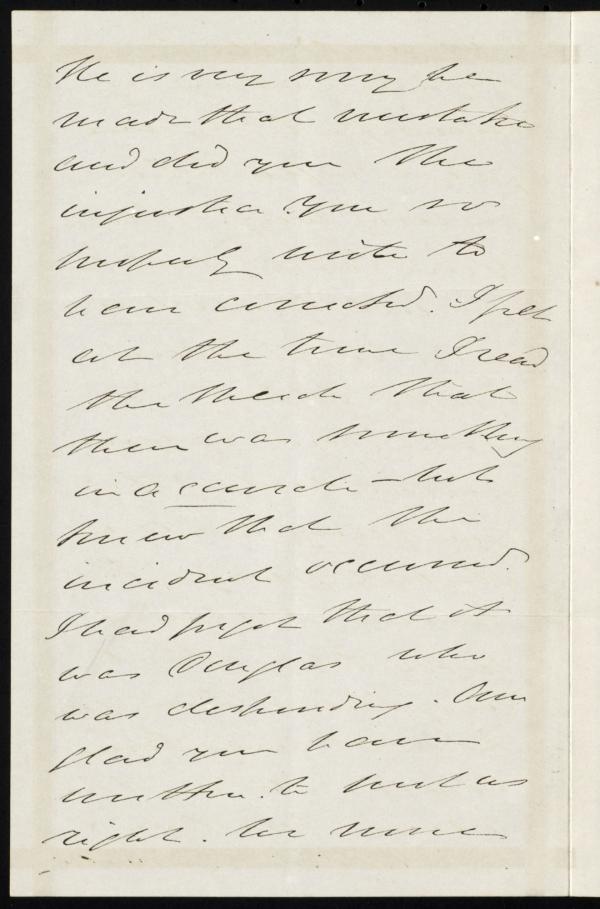 He is very sorry he
made that mistake
and did you the
injustice you so
properly write to
have corrected. I felt
at the time I read
the that
there was something
inaccurate - but
knew that the
incident occurred.
I had forgot that it
was Douglas who
was desponding. Am
glad you have
written to put us
right. We none